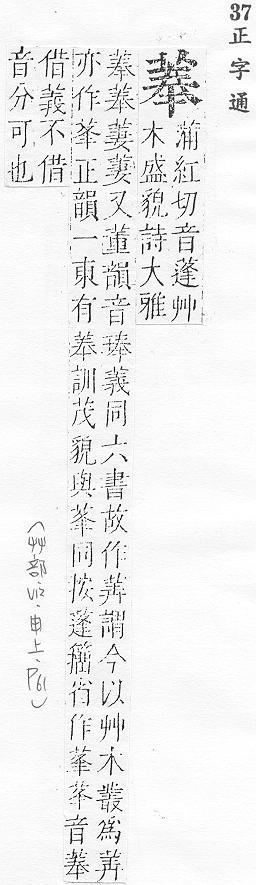 37正字通
菶
蒲紅切音蓬艸
木盛貌詩大雅
菶菶萋萋又董韻音琫義同六書故作茻謂今以艸木叢為茻
亦作莑正韻一東有菶訓茂貌與莑同按蓬籀省作莑莑音菶
借義不借
音分可也
(艸部.V12.申上.P61)